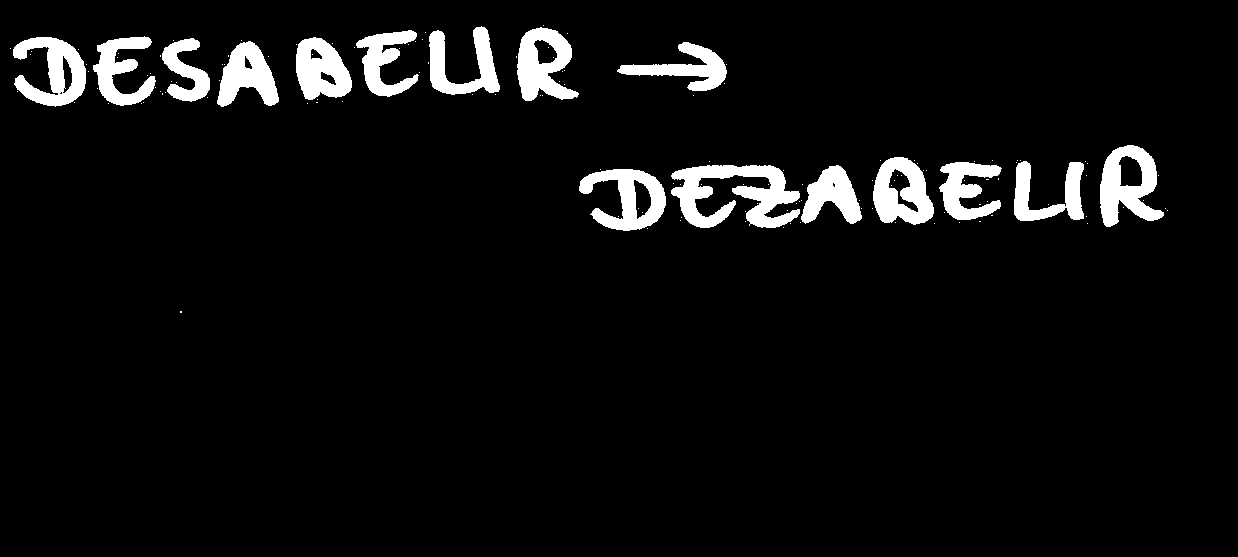 DESABELIR →
DEZABELIR